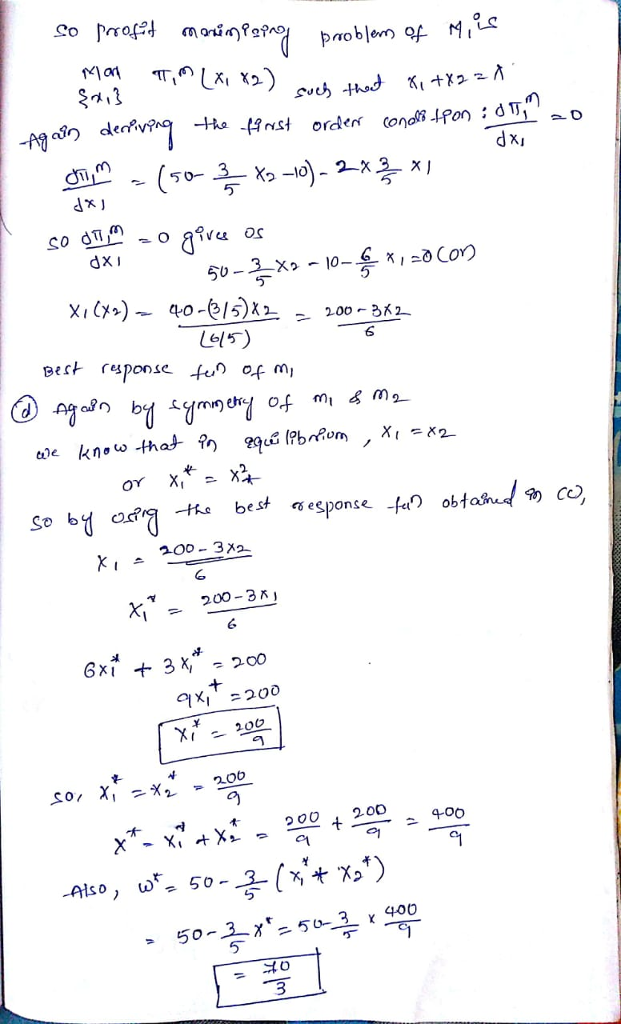 so profit maximizing problem of M₁ is
Max π₁ᵐ (x₁, x₂) such that x₁ + x₂ = X
{x₁}
Again deriving the first order condition : dπ₁ᵐ/dx₁ = 0
dπ₁ᵐ/dx₁ = (50 - 3/5 x₂ - 10) - 2 × 3/5 x₁
so dπ₁ᵐ/dx₁ = 0 gives us
50 - 3/5 x₂ - 10 - 6/5 x₁ = 0 (or)
x₁(x₂) = 40 - (3/5)x₂ / (6/5) = 200 - 3x₂ / 6
Best response fun of m₁
(d) Again by symmetry of m₁ & m₂
we know that in equilibrium, x₁ = x₂
or x₁* = x₂*
so by using the best response fun obtained in (c),
x₁ = 200 - 3x₂ / 6
x₁* = 200 - 3x₁ / 6
6x₁* + 3x₁* = 200
9x₁* = 200
x₁* = 200/9
so, x₁* = x₂* = 200/9
x* = x₁* + x₂* = 200/9 + 200/9 = 400/9
Also, w* = 50 - 3/5 (x₁* + x₂*)
= 50 - 3/5 x* = 50 - 3/5 × 400/9
= 70/3